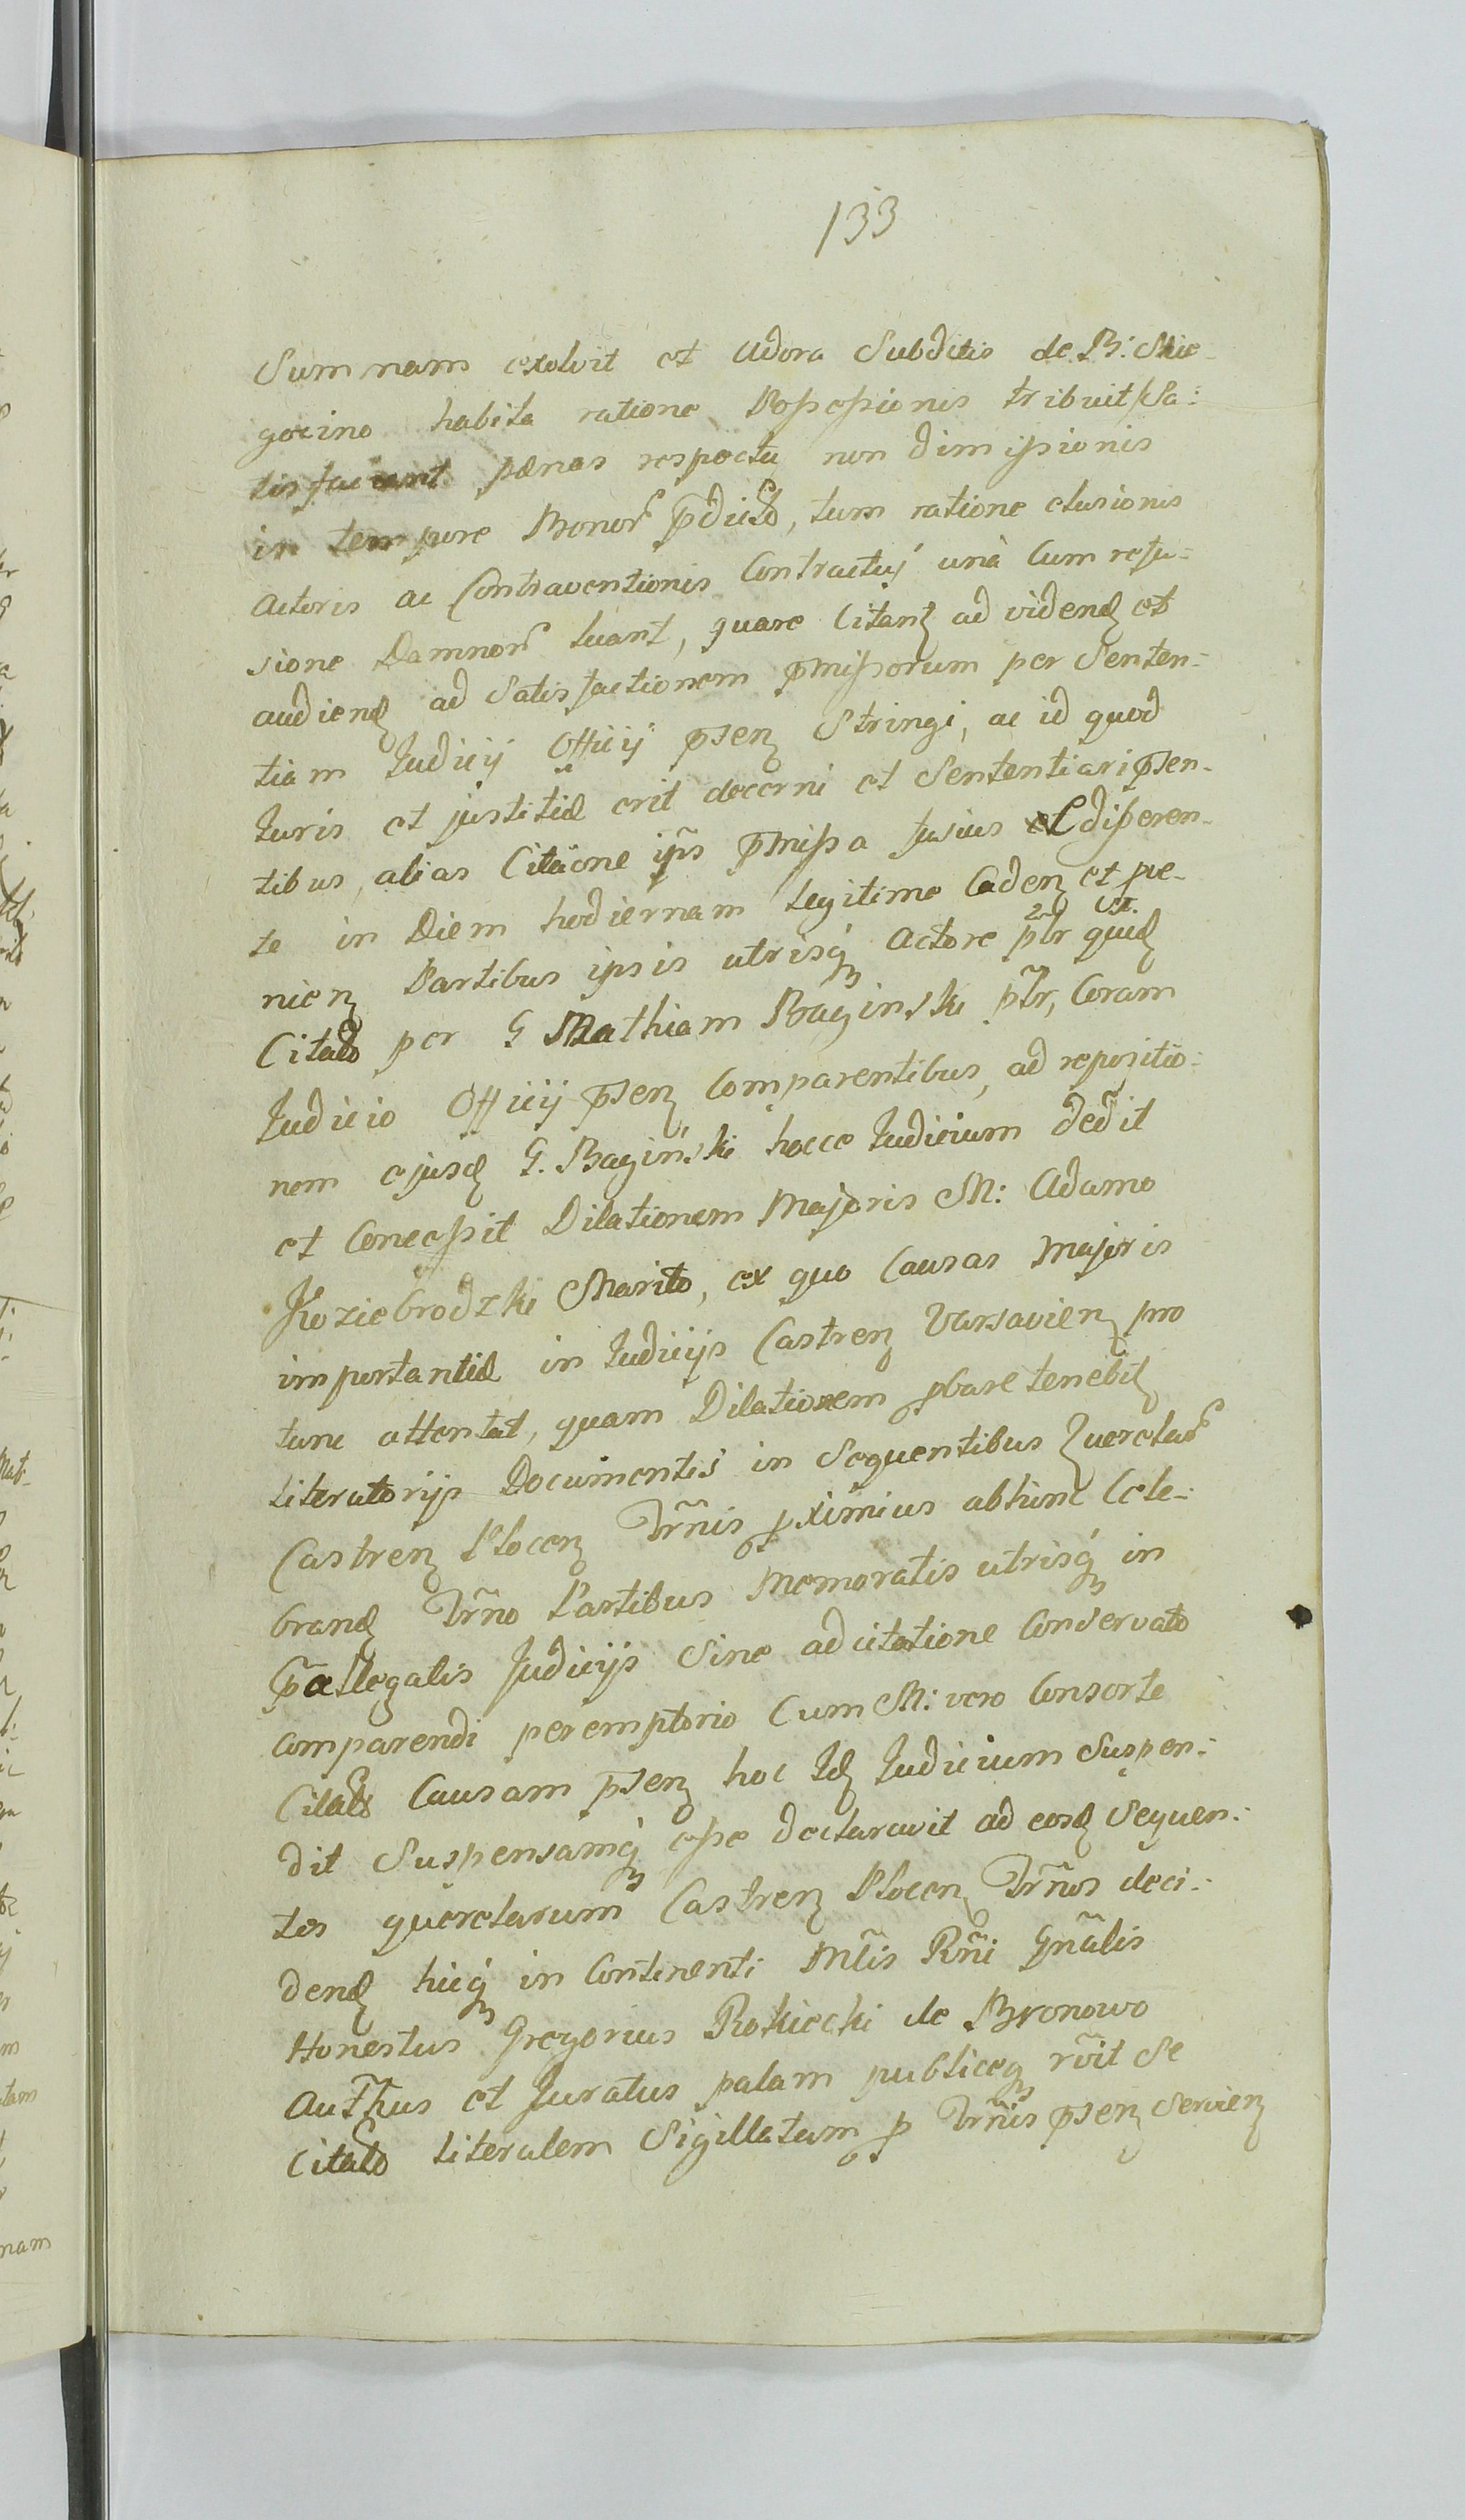 133
Summam exolvit et Adora Subditis de B: Mie-
gocino habita ratione Possessionis tribuit Sa:
tisfaciant pænas respectu non dimissionis
in tempore Bonor̃ p̃dictõ, tum ratione elusionis
Actoris ac Contraventionis Contractuj unà Cum refu:
sione Damnor̃ luant, quare Citanʒ ad videndʒ et
audiendʒ ad Satisfactionem p̃missorum per Senten:
tiam Judicij Officij p̃senʒ Stringi, ac id quod
Juris et justitiæ erit decerni et Sententiari p̃sen-
tibus, alias Citãone ip̃s p̃missa fusius disseren-
te in Diem hodiernam Legitime Cadenʒ et pve-
nienʒ Partibus ipsis utrisqʒ Actore pl̃r quidʒ
Citatõ per G Mathiam Baginski pl̃r, Coram
Judicio Officij p̃senʒ Comparentibus, ad repositio:
nem ejusdʒ G. Baginski hocce Judicium dedit
et Concessit Dilationem Majoris M: Adamo
Koziebrodzki Marito, ex quo Causas Majoris
importantiæ in Judicijs Castrenʒ Varsavienʒ pro
tunc attentat, quam Dilationem pbare tenebitʒ
Literatorijs Documentis in Sequentibus Querelar̃
Castrenʒ Plocenʒ Tr̃nis pximius abhinc Cele:
brandʒ Tr̃no Partibus Memoratis utrisqʒ in
p̃allegatis Judicijs Sine adcitatione Conservato
comparendi peremptorio Cum M: vero Consorte
Citatõ Causam p̃senʒ hoc Idʒ Judicium Suspen:
dit Suspensamqʒ esse declaravit ad eosdʒ Sequen:
tes querelarum Castrenʒ Plocenʒ Tr̃nos deci:
dendʒ hicqʒ in Continenti Mt̃is Rñi Gñalis
Honestus Gregorius Rokicki de Bronowo
Auth̃us et Juratus palam publiceqʒ rṽit Se
Citatõ Literalem Sigillatam p Tr̃nis p̃senʒ Servienʒ